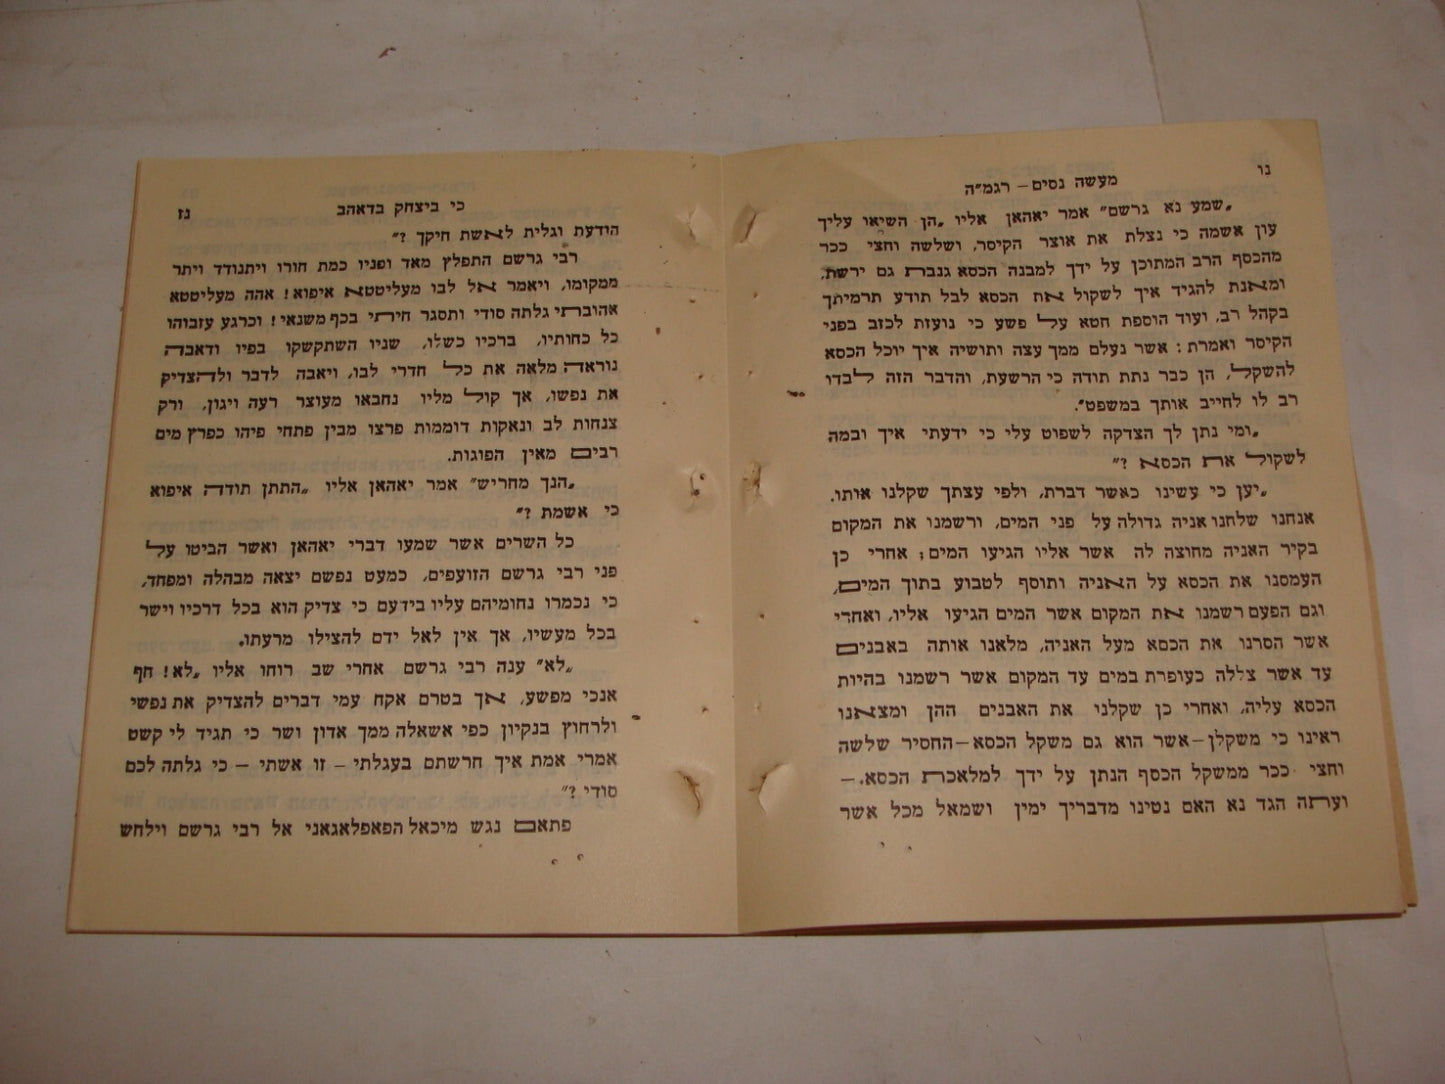 נו
מעשה נסים – רגמ״ה
„שמע נא גרשם״ אמר יאהאן אליו „הן השיאו עליך
עון אשמה כי נצלת את אוצר הקיסר, ושלשה וחצי ככר
מהכסף הרב המתוכן על ידך למבנה הכסא גנבת גם ירשת,
ומאנת להגיד איך לשקול את הכסא לבל תודע תרמיתך
בקהל רב, ועוד הוספת חטא על פשע כי נועזת לכזב בפני
הקיסר ואמרת : אשר נעלם ממך עצה ותושיה איך יוכל הכסא
להשקל, הן כבר נתת תודה כי הרשעת, והדבר הזה לבדו
רב לו לחייב אותך במשפט״.
„ומי נתן לך הצדקה לשפוט עלי כי ידעתי איך ובמה
לשקול את הכסא ?״
„יען כי עשינו כאשר דברת, ולפי עצתך שקלנו אותו.
אנחנו שלחנו אניה גדולה על פני המים, ורשמנו את המקום
בקיר האניה מחוצה לה אשר אליו הגיעו המים ; אחרי כן
העמסנו את הכסא על האניה ותוסף לטבוע בתוך המים,
וגם הפעם רשמנו את המקום אשר המים הגיעו אליו, ואחרי
אשר הסרנו את הכסא מעל האניה, מלאנו אותה באבנים
עד אשר צללה כעופרת במים עד המקום אשר רשמנו בהיות
הכסא עליה, ואחרי כן שקלנו את האבנים ההן ומצאנו
ראינו כי משקלן – אשר הוא גם משקל הכסא – החסיר שלשה
וחצי ככר ממשקל הכסף הנתן על ידך למלאכת הכסא. –
ועתה הגד נא האם נטינו מדבריך ימין ושמאל מכל אשר
כי ביצחק בדאהב
נז
הודעת וגלית לאשת חיקך ?״
רבי גרשם התפלץ מאד ופניו כמת חורו ויתנודד ויתר
ממקומו, ויאמר אל לבו מעליטטא איפוא ! אהה מעליטטא
אהובתי גלתה סודי ותסגר חיתי בכף משנאי ! וכרגע עזבוהו
כל כחותיו, ברכיו כשלו, שניו השתקשקו בפיו ודאבה
נוראה מלאה את כל חדרי לבו, ויאבה לדבר ולהצדיק
את נפשו, אך קול מליו נחבאו מעוצר רעה ויגון, ורק
צנחות לב ונאקות דוממות פרצו מבין פתחי פיהו כפרץ מים
רבים מאין הפוגות.
„הנך מחריש״ אמר יאהאן אליו „התתן תודה איפוא
כי אשמת ?״
כל השרים אשר שמעו דברי יאהאן ואשר הביטו על
פני רבי גרשם הזועפים, כמעט נפשם יצאה מבהלה ומפחד,
כי נכמרו נחומיהם עליו בידעם כי צדיק הוא בכל דרכיו וישר
בכל מעשיו, אך אין לאל ידם להצילו מרעתו.
„לא״ ענה רבי גרשם אחרי שב רוחו אליו „לא ! חף
אנכי מפשע, אך בטרם אקח עמי דברים להצדיק את נפשי
ולרחוץ בנקיון כפי אשאלה ממך אדון ושר כי תגיד לי קשט
אמרי אמת איך חרשתם בעגלתי – זו אשתי – כי גלתה לכם
סודי ?״
פתאם נגש מיכאל הפאפלאגאני אל רבי גרשם וילחש